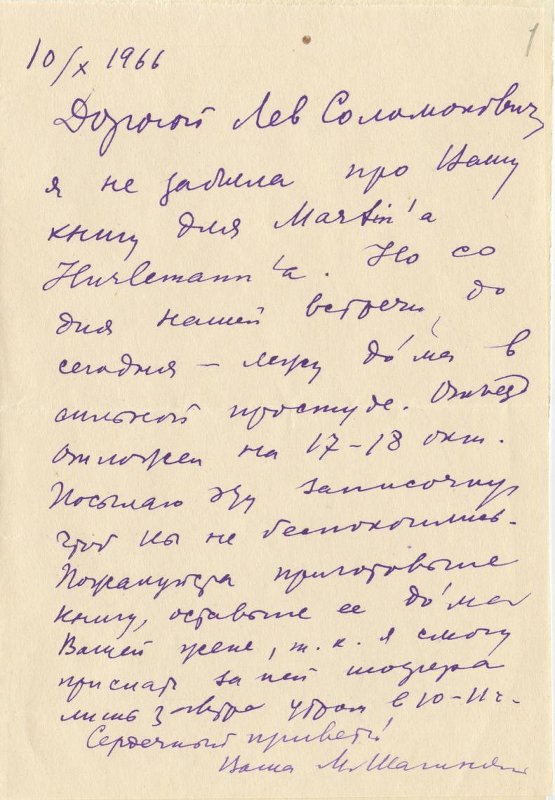 1
10/X 1966
Дорогой Лев Соломонович,
я не забыла про Вашу
книгу для Martin'а
Hürlemann'а. Но со
дня нашей встречи, до
сегодня — лежу до́ма в
сильной простуде. Отъезд
отложен на 17–18 окт.
Посылаю эту записочку,
чтоб Вы не беспокоились.
Пожалуйста приготовьте
книгу, оставьте ее до́ма
Вашей жене, т. к. я смогу
прислать за ней шофера
лишь завтра утром в 10–11 ч.
Сердечный привет!
Ваша М. Шагинян